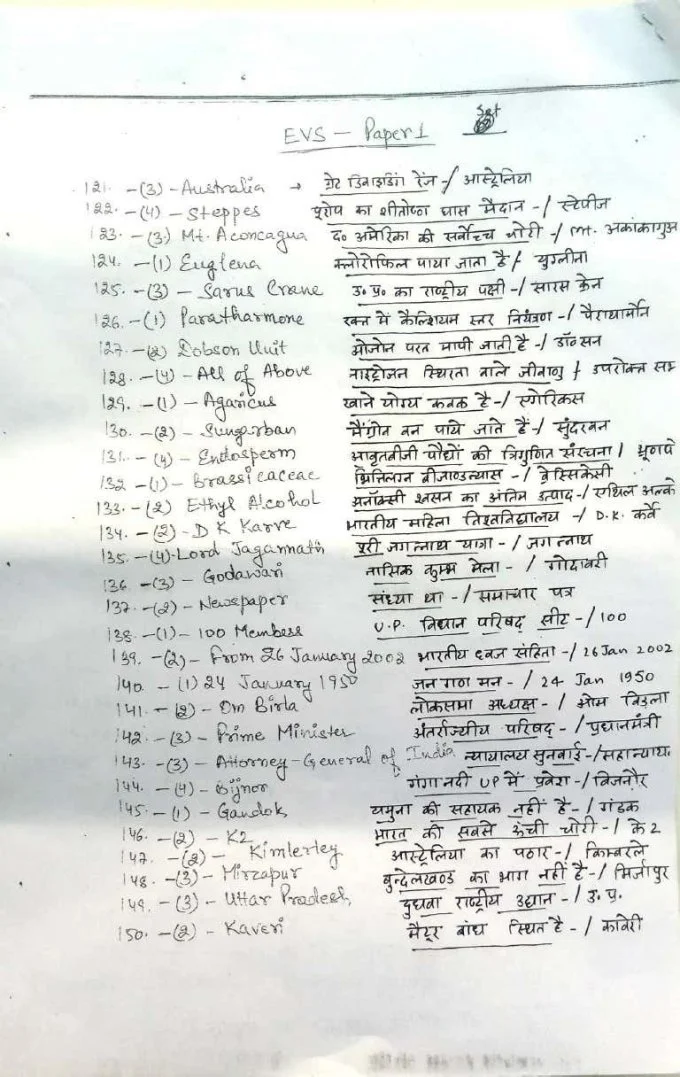 EVS - Paper 1 Set
121. - (3) - Australia → ग्रेट डिवाइडिंग रेंज - / आस्ट्रेलिया
122. - (4) - Steppes यूरोप का शीतोष्ण घास मैदान - / स्टेपीज
123. - (3) Mt. Aconcagua द० अमेरिका की सर्वोच्च चोटी - / Mt. अकांकागुआ
124. - (1) Euglena क्लोरोफिल पाया जाता है / युग्लीना
125. - (3) - Sarus Crane उ० प्र० का राष्ट्रीय पक्षी - / सारस क्रेन
126. - (1) Paratharmone रक्त में कैल्शियम स्तर नियंत्रण - / पैराथार्मोन
127. - (2) Dobson Unit ओजोन परत मापी जाती है - / डॉबसन
128. - (4) - All of Above नाइट्रोजन स्थिरता वाले जीवाणु / उपरोक्त सभ
129. - (1) - Agaricus खाने योग्य कवक है - / एगेरिकस
130. - (2) - Sungarban मैंग्रोव वन पाये जाते हैं - / सुंदरवन
131. - (4) - Endosperm आवृतबीजी पौधों की त्रिगुणित संरचना / भ्रूणपो
132 - (1) - Brassicaceae भित्तिलग्न बीजाण्डन्यास - / ब्रेस्सिकेसी
133. - (2) Ethyl Alcohol अनॉक्सी श्वसन का अंतिम उत्पाद - / एथिल अल्को
134. - (2) - D K Karve भारतीय महिला विश्वविद्यालय - / D.K. कर्वे
135. - (4) - Lord Jagannath पुरी जगन्नाथ यात्रा - / जगन्नाथ
136 - (3) - Godawari नासिक कुम्भ मेला - / गोदावरी
137. - (2) - Newspaper संध्या था - / समाचार पत्र
138. - (1) - 100 Members U.P. विधान परिषद सीट - / 100
139. - (2) - From 26 January 2002 भारतीय ध्वज संहिता - / 26 Jan 2002
140. - (1) 24 January 1950 जन गण मन - / 24 Jan 1950
141. - (2) - Om Birla लोकसभा अध्यक्ष - / ओम बिड़ला
142. - (3) - Prime Minister अंतर्राज्यीय परिषद - / प्रधानमंत्री
143. - (3) - Attorney-General of India न्यायालय सुनवाई - / महान्याय.
144. - (4) - Bijnor गंगा नदी UP में प्रवेश - / बिजनौर
145. - (1) - Gandok यमुना की सहायक नहीं है - / गंडक
146. - (2) - K2 भारत की सबसे ऊंची चोटी - / के 2
147. - (2) - Kimlerley आस्ट्रेलिया का पठार - / किम्बरले
148. - (3) - Mirzapur बुन्देलखण्ड का भाग नहीं है - / मिर्जापुर
149. - (3) - Uttar Pradesh, दुधवा राष्ट्रीय उद्यान - / उ. प्र.
150. - (2) - Kaveri मैटूर बांध स्थित है - / कावेरी